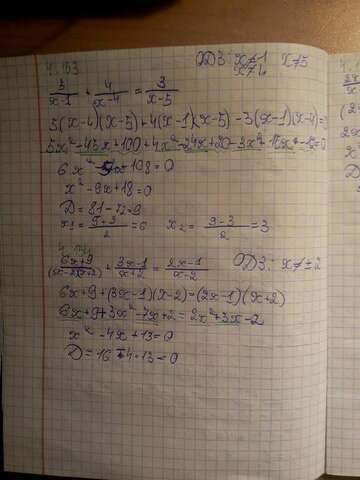 4.133
ОДЗ: x≠1 x≠5
x≠4
5/(x-1) + 4/(x-4) = 3/(x-5)
5(x-4)(x-5)+4(x-1)(x-5)-3(x-1)(x-4)=0
5x²-45x+100+4x²-24x+20-3x²+15x-12=0
6x²-54x+108=0
x²-9x+18=0
D=81-72=9
x₁=(9+3)/2=6 x₂=(9-3)/2=3
(6x+9)/((x-2)(x+2)) + (3x-1)/(x+2) = (2x-1)/(x-2) ОДЗ: x≠±2
6x+9+(3x-1)(x-2)=(2x-1)(x+2)
6x+9+3x²-7x+2=2x²+3x-2
x²-4x+13=0
D=16-4·13=0